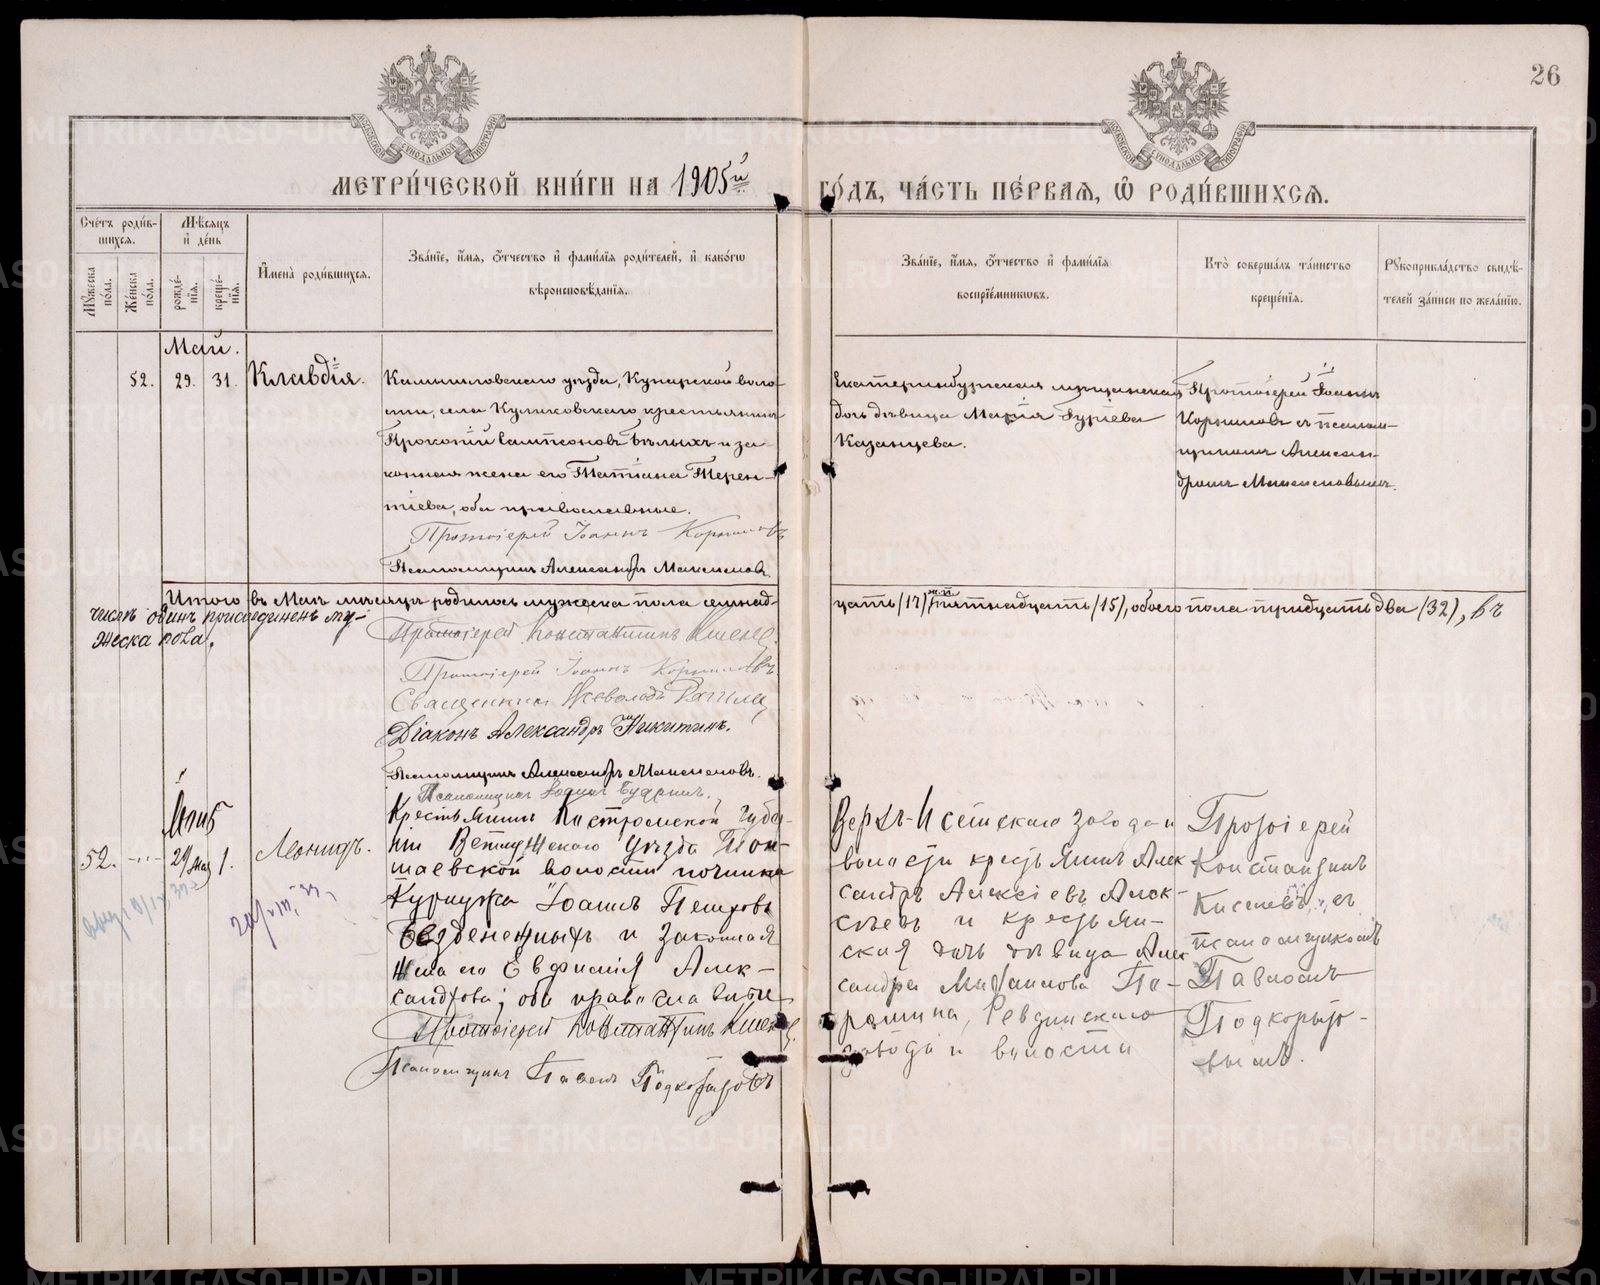 26
МОСКОВСКОЙ СѴНОДАЛЬНОЙ ТИПОГРАФІИ
МОСКОВСКОЙ СѴНОДАЛЬНОЙ ТИПОГРАФІИ
МЕТРИ́ЧЕСКОЙ КНИ́ГИ НА 1905й ГО́ДЪ, ЧА́СТЬ ПЕ́РВАЯ, Ѿ РОДИ́ВШИХСЯ.
Счетъ роди́в-
шихся.
Мѣсяцъ
и де́нь
Мꙋжеска
по́ла.
Же́нска
по́ла.
рожде́-
нія.
креще́-
нія.
Имена̀ роди́вшихся.
Зва́ніе, и́мя, ѻ́тчество и фами́лія роди́телей, и како́гѡ
вѣроисповѣ́данія.
Зва́ніе, и́мя, ѻ́тчество и фами́лія
воспріе́мникѡвъ.
Кто̀ соверша́лъ та́инство
креще́нія.
Рꙋкоприкла́дство свидѣ́-
телей за́писи по жела́нію.
Май.
52. 29. 31. Клавдія.
Камышловскаго уѣзда, Куяровской воло-
сти, села Куликовскаго крестьянинъ
Прокопій Сампсоновъ Бѣлыхъ и за-
конная жена его Татіана Терен-
тіева, оба православные.
Протоіерей Іоаннъ Корниловъ
Псаломщикъ Александръ Максимовъ
Екатеринбургская мѣщанская
дочь дѣвица Марія Гуріева
Казанцева.
Протоіерей Іоаннъ
Корниловъ съ псалом-
щикомъ Алексан-
дромъ Максимовымъ.
Итого въ Маѣ мѣсяцѣ родилось мужеска пола семнад-
цать (17), ж.п. пятнадцать (15), обоего пола тридцать два (32), въ
числѣ одинъ присоединенъ му-
жеска пола.
Протоіерей Константинъ
Протоіерей Іоаннъ Корниловъ
Священникъ Всеволодъ
Діаконъ Александръ Никитинъ.
Псаломщикъ Александръ Максимовъ.
Псаломщикъ
52. 29/Мая 1. Леонидъ.
Крестьянинъ Костромской губер-
ніи Ветлужскаго уѣзда Тон-
шаевской волости починка
Іоаннъ Петровъ
Безденежныхъ и законная
жена его Евфимія Алек-
сандрова; оба православные
Протоіерей Константинъ
Псаломщикъ Павелъ Подкорытовъ
Верхъ-Исетскаго завода и
волости крестьянинъ Алек
сандръ Алексіевъ Алек-
сѣевъ и крестьян-
ская дочь дѣвица Алек
сандра Михаилова
Ревдинскаго
завода и волости
Протоіерей
Константинъ
съ
псаломщикомъ
Павломъ
Подкорыто-
вымъ.
METRIKI.GASO-URAL.RU